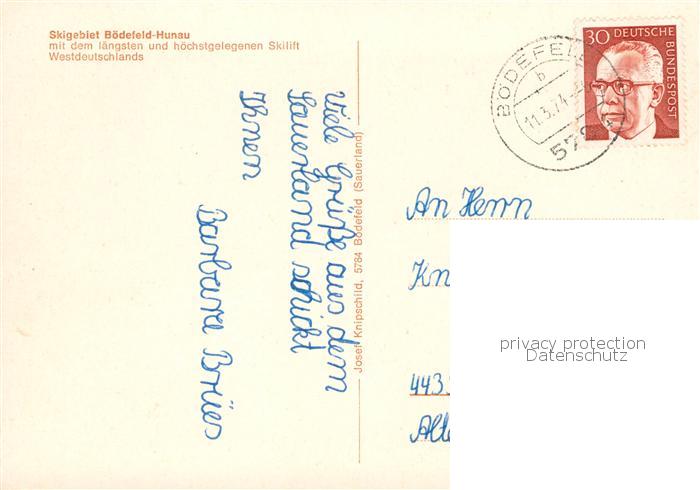 Skigebiet Bödefeld-Hunau
mit dem längsten und höchstgelegenen Skilift
Westdeutschlands
30 DEUTSCHE
BUNDESPOST
BÖDEFELD
b
11.3.74
578
Viele Grüße aus dem
Sauerland schickt
Ihnen
Barbara Brües
Josef Knipschild, 5784 Bödefeld (Sauerland)
An Herrn
Kn
443
Alte
privacy protection
Datenschutz